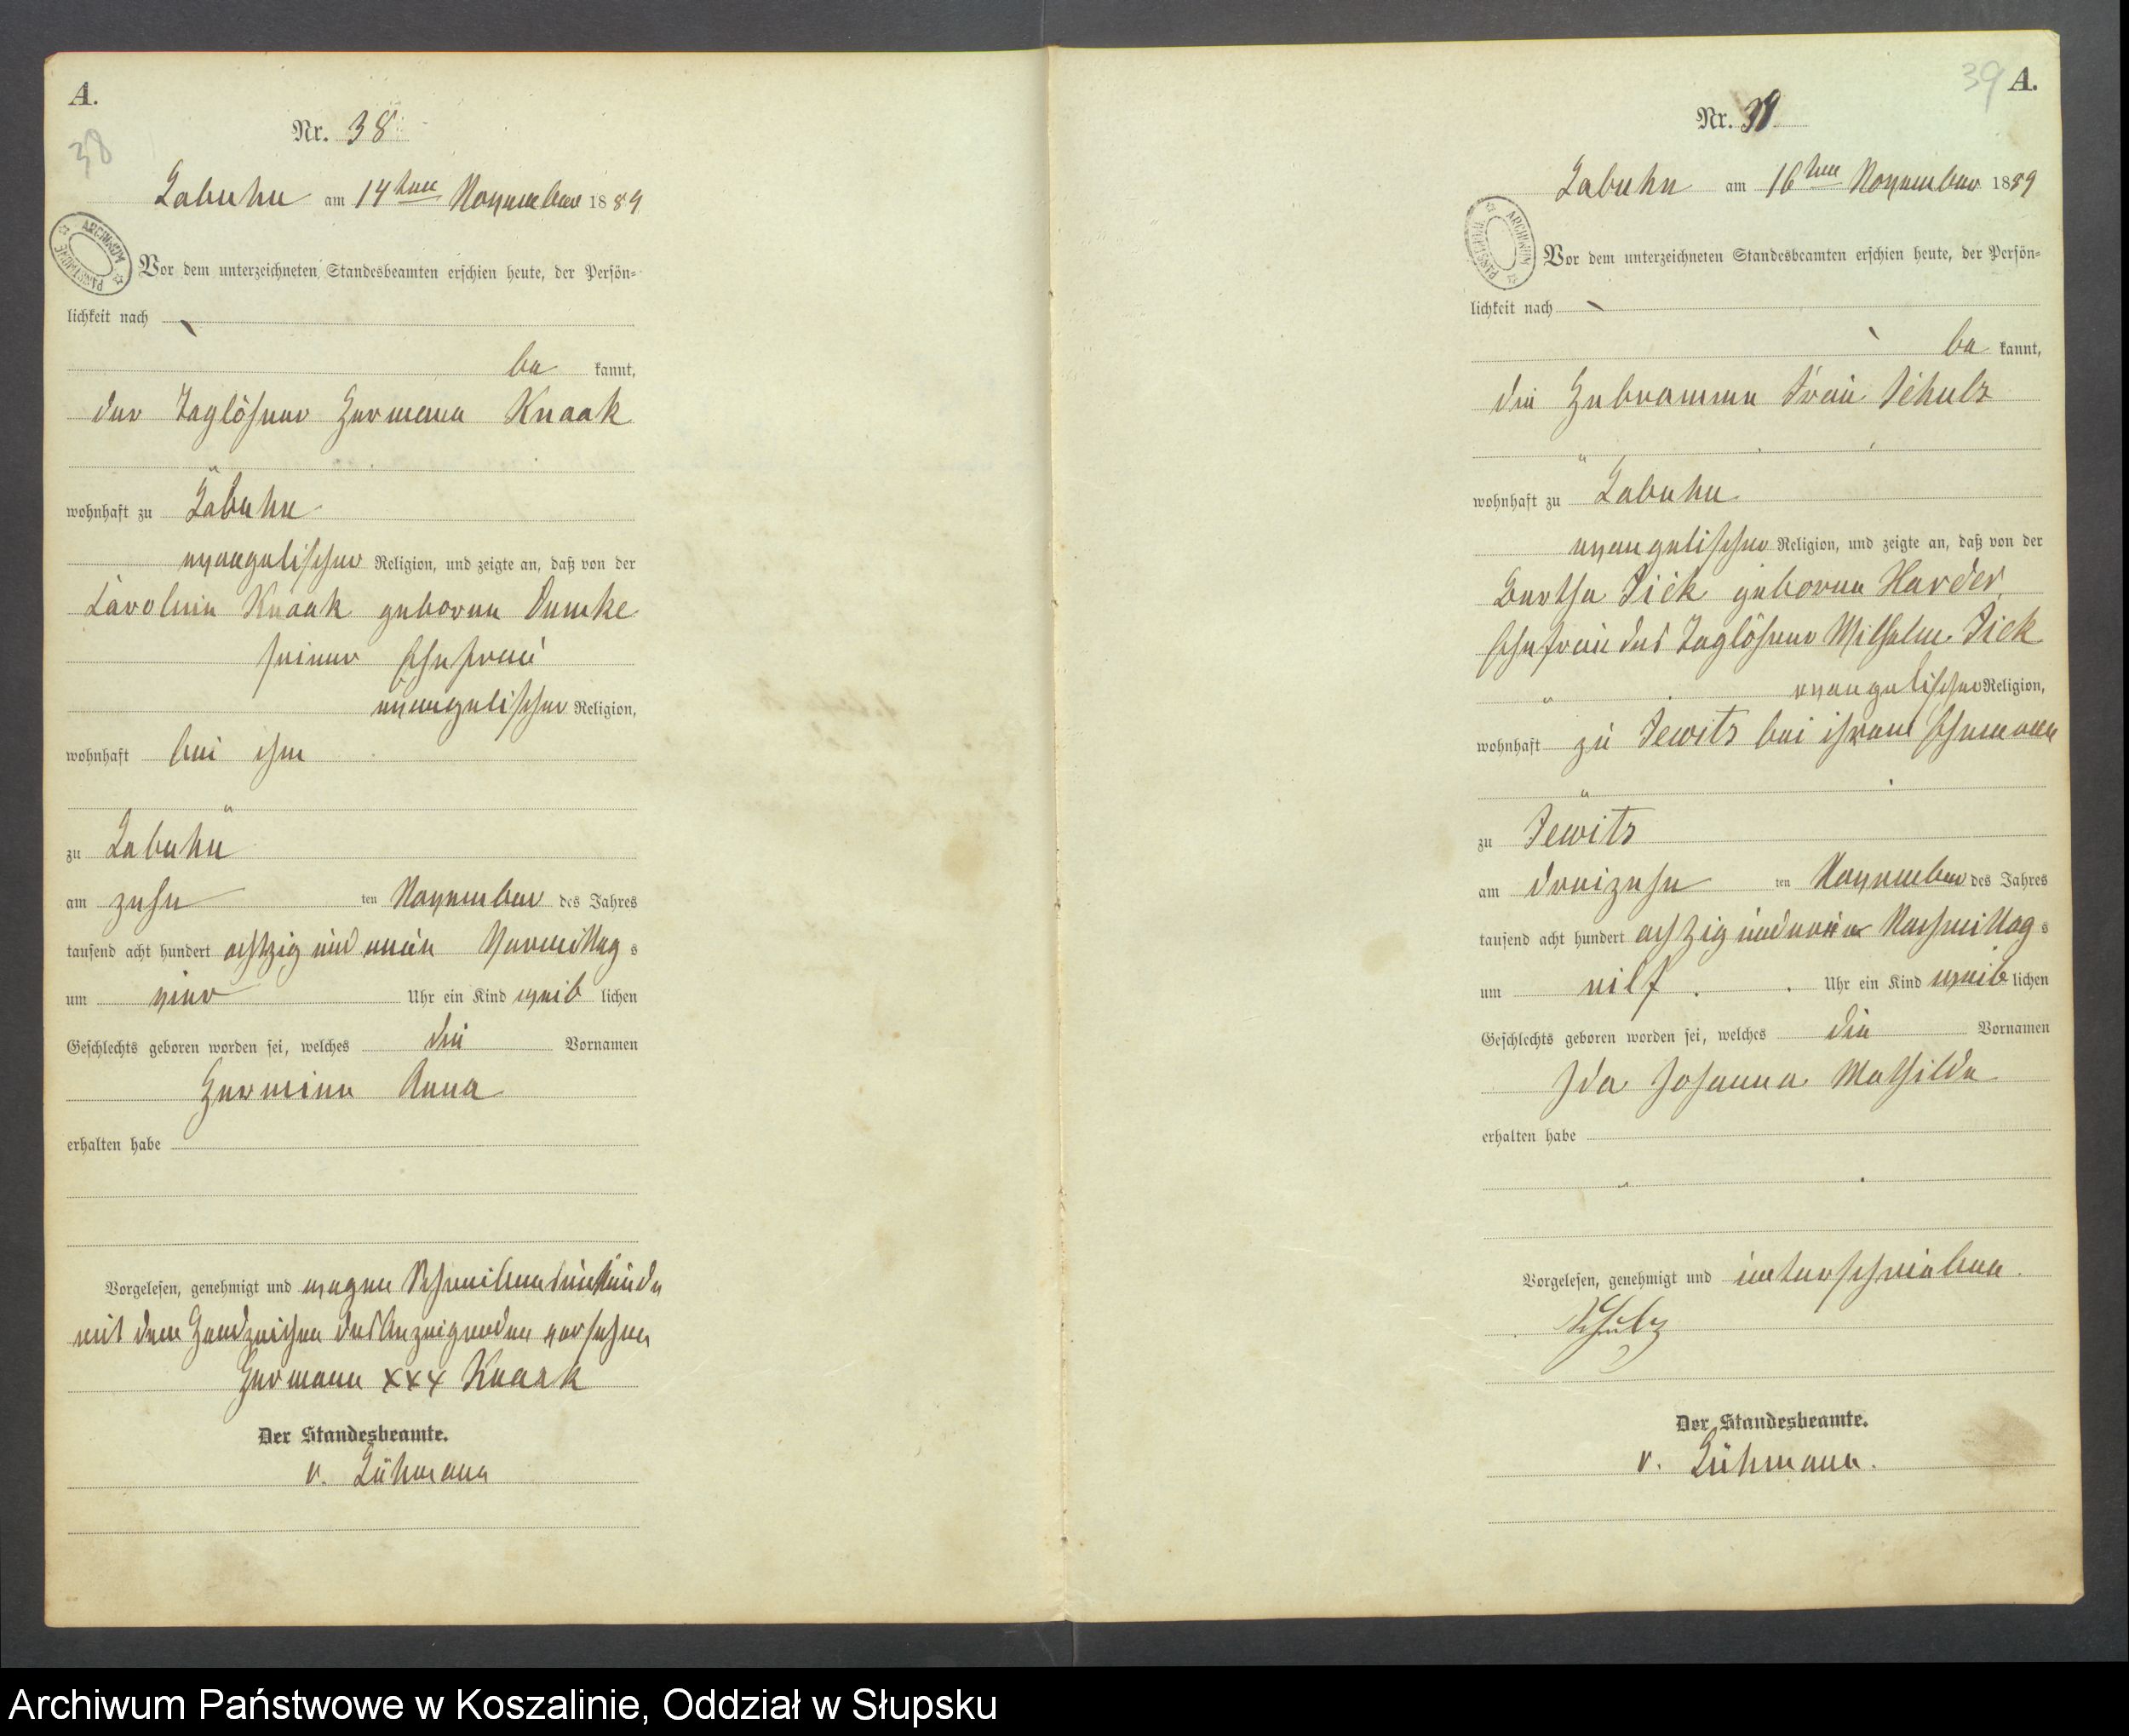 A.
38
Nr. 38
Labuhn am 14ten November 1889
ARCHIWUM PAŃSTWOWE
Vor dem unterzeichneten Standesbeamten erschien heute, der Persön-
lichkeit nach
be kannt,
der Taglöhner Hermann Knaak
wohnhaft zu Labuhn
evangelischer Religion, und zeigte an, daß von der
Karoline Knaak geborne Dumke
seiner Ehefrau
evangelischer Religion,
wohnhaft bei ihm
zu Labuhn
am zehn ten November des Jahres
tausend acht hundert achtzig und neun Vormittag s
um vier Uhr ein Kind weib lichen
Geschlechts geboren worden sei, welches die Vornamen
Hermine Anna
erhalten habe
Vorgelesen, genehmigt und wegen Schreibensunkunde
mit dem Handzeichen des Anzeigenden versehen
Hermann xxx Knaak
Der Standesbeamte.
v. Lühmann
39 A.
Nr. 39
Labuhn am 16ten November 1889
ARCHIWUM PAŃSTWOWE
Vor dem unterzeichneten Standesbeamten erschien heute, der Persön-
lichkeit nach
be kannt,
die Hebamme Frau Schulz
wohnhaft zu Labuhn
evangelischer Religion, und zeigte an, daß von der
Bertha Dick geborne Harder,
Ehefrau des Taglöhner Wilhelm Dick
evangelischer Religion,
wohnhaft zu Jewitz bei ihrem Ehemann
zu Jewitz
am dreizehn ten November des Jahres
tausend acht hundert achtzig und neun Nachmittag s
um eilf Uhr ein Kind weib lichen
Geschlechts geboren worden sei, welches die Vornamen
Ida Johanna Mathilde
erhalten habe
Vorgelesen, genehmigt und unterschrieben.
Schulz
Der Standesbeamte.
v. Lühmann.
Archiwum Państwowe w Koszalinie, Oddział w Słupsku